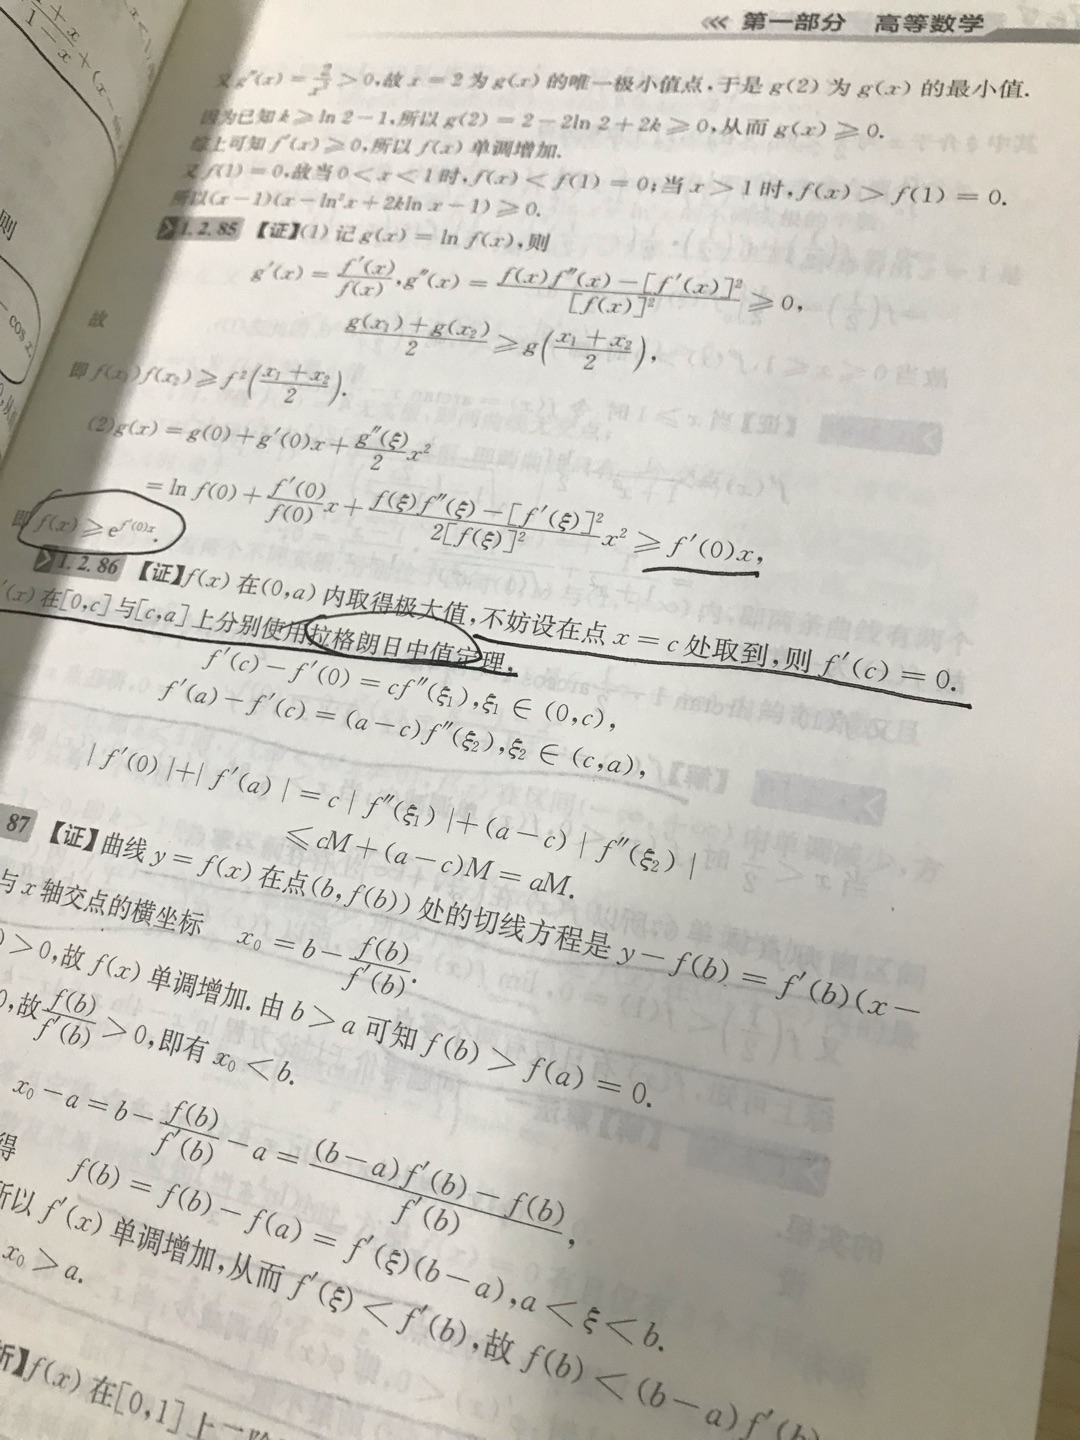 第一部分 高等数学
又g″(x) = 2/x² > 0,故 x = 2 为 g(x) 的唯一极小值点,于是 g(2) 为 g(x) 的最小值.
因为已知 k ⩾ ln 2 − 1,所以 g(2) = 2 − 2ln 2 + 2k ⩾ 0,从而 g(x) ⩾ 0.
综上可知 f′(x) ⩾ 0,所以 f(x) 单调增加.
又 f(1) = 0,故当 0 < x < 1 时, f(x) < f(1) = 0;当 x > 1 时, f(x) > f(1) = 0.
所以(x − 1)(x − ln²x + 2kln x − 1) ⩾ 0.
1.2.85 【证】(1) 记 g(x) = ln f(x),则
g′(x) = f′(x)/f(x), g″(x) = (f(x)f″(x) − [f′(x)]²)/[f(x)]² ⩾ 0,
故 (g(x₁) + g(x₂))/2 ⩾ g((x₁ + x₂)/2),
即 f(x₁)f(x₂) ⩾ f²((x₁ + x₂)/2).
(2)g(x) = g(0) + g′(0)x + g″(ξ)/2 x²
= ln f(0) + f′(0)/f(0) x + (f(ξ)f″(ξ) − [f′(ξ)]²)/2[f(ξ)]² x² ⩾ f′(0)x,
即 f(x) ⩾ e^{f′(0)x}.
1.2.86 【证】f(x) 在(0,a) 内取得极大值,不妨设在点 x = c 处取到,则 f′(c) = 0.
′(x) 在[0,c] 与[c,a] 上分别使用拉格朗日中值定理,
f′(c) − f′(0) = cf″(ξ₁),ξ₁ ∈ (0,c),
f′(a) − f′(c) = (a − c)f″(ξ₂),ξ₂ ∈ (c,a),
| f′(0) | + | f′(a) | = c | f″(ξ₁) | + (a − c) | f″(ξ₂) |
⩽ cM + (a − c)M = aM.
87 【证】曲线 y = f(x) 在点(b, f(b)) 处的切线方程是 y − f(b) = f′(b)(x −
与 x 轴交点的横坐标 x₀ = b − f(b)/f′(b).
) > 0,故 f(x) 单调增加. 由 b > a 可知 f(b) > f(a) = 0.
0,故 f(b)/f′(b) > 0,即有 x₀ < b.
x₀ − a = b − f(b)/f′(b) − a = ((b − a)f′(b) − f(b))/f′(b),
得 f(b) = f(b) − f(a) = f′(ξ)(b − a),a < ξ < b.
所以 f′(x) 单调增加,从而 f′(ξ) < f′(b),故 f(b) < (b − a)f′(b)
x₀ > a.
析】f(x) 在[0,1] 上二阶